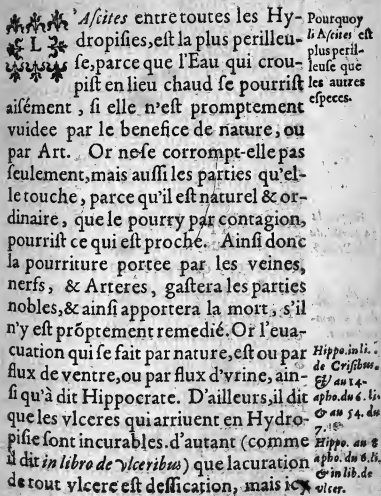 L'Aſcites entre toutes les Hy-
dropiſies, eſt la plus perilleu-
ſe, parce que l'Eau qui crou-
piſt en lieu chaud ſe pourriſt
aiſément, ſi elle n'eſt promptement
vuidee par le benefice de nature, ou
par Art. Or ne ſe corrompt-elle pas
ſeulement, mais auſſi les parties qu'el-
le touche, parce qu'il eſt naturel & or-
dinaire, que le pourry par contagion,
pourriſt ce qui eſt proche. Ainſi donc
la pourriture portee par les veines,
nerfs, & Arteres, gaſtera les parties
nobles, & ainſi apportera la mort, s'il
n'y eſt prõptement remedié. Or l'eua-
cuation qui ſe fait par nature, eſt ou par
flux de ventre, ou par flux d'vrine, ain-
ſi qu'à dit Hippocrate. D'ailleurs, il dit
que les vlceres qui arriuent en Hydro-
piſie ſont incurables. d'autant (comme
il dit in libro de vlceribus) que la curation
de tout vlcere eſt deſſication, mais icy
Pourquoy
l'Aſcites eſt
plus peril-
leuſe que
les autres
eſpeces.
Hippo. in li.
de Criſibus.
& au 14.
apho. du 6. li.
& au 54. du
7.
Hippo. au 8
apho. du 6. li.
& in lib. de
vlcer.